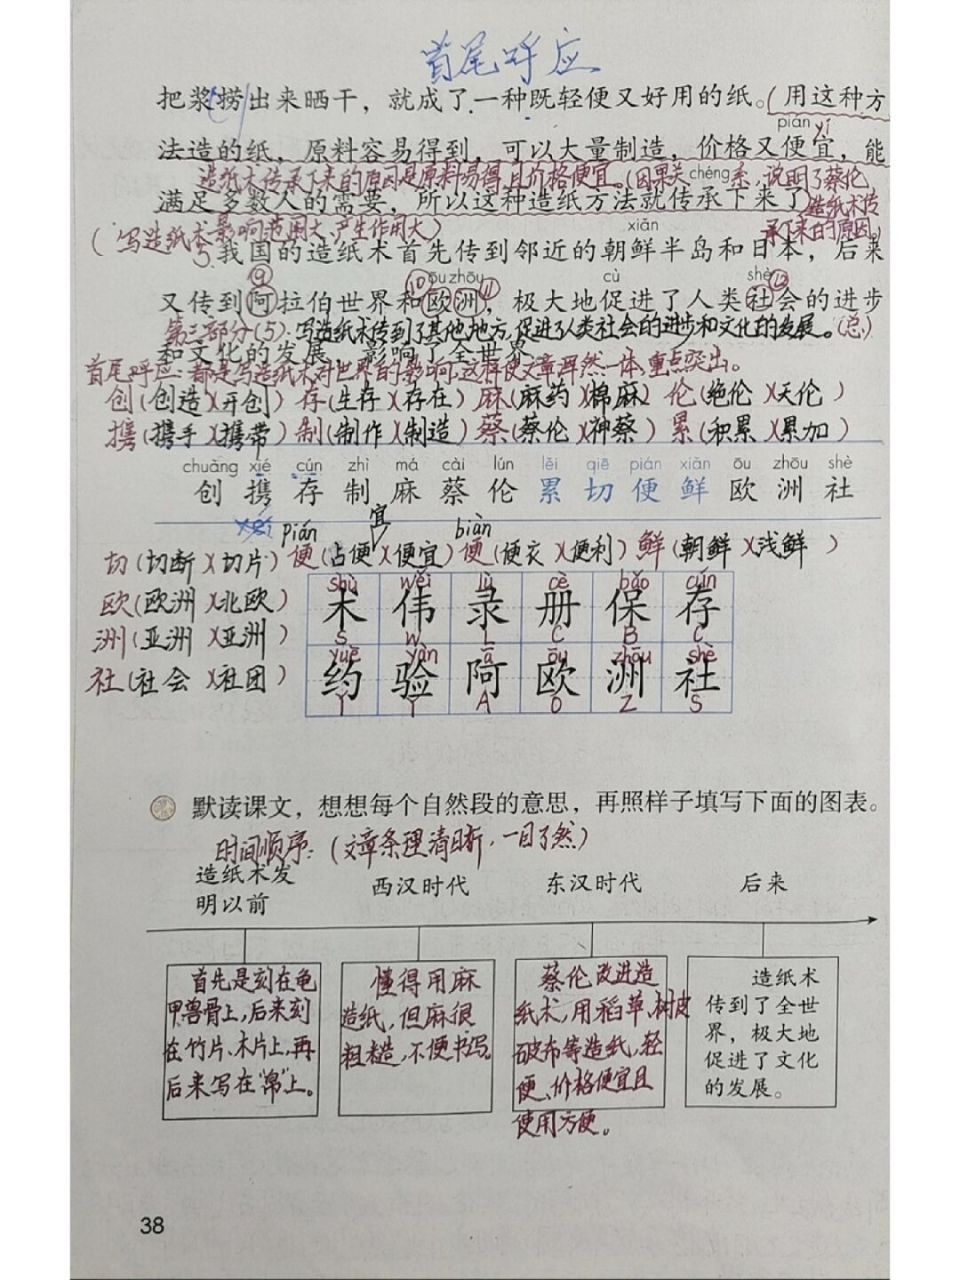 首尾呼应
把浆捞出来晒干，就成了一种既轻便又好用的纸。（用这种方
pián yí
法造的纸，原料容易得到，可以大量制造，价格又便宜，能
造纸术传承下来的原因是原料易得且价格便宜。（因果关系，说明了蔡伦
chéng
满足多数人的需要，所以这种造纸方法就传承下来了
造纸术传
承下来的原因）
（写造纸术影响范围大、产生作用大）
xiǎn
5.我国的造纸术首先传到邻近的朝鲜半岛和日本，后来
⑨ ⑩ōu zhōu⑪ cù shè⑫
又传到阿拉伯世界和欧洲，极大地促进了人类社会的进步
第三部分（5）：写造纸术传到了其他地方，促进了人类社会的进步和文化的发展。（总）
和文化的发展，影响了全世界。
首尾呼应：都是写造纸术对世界的影响，这样使文章浑然一体、重点突出。
创（创造 X开创）存（生存 X存在）麻（麻药 X棉麻）伦（绝伦 X天伦）
携（携手 X携带）制（制作 X制造）蔡（蔡伦 X神蔡）累（积累 X累加）
chuàng xié cún zhì má cài lún lěi qiē pián xiǎn ōu zhōu shè
创 携 存 制 麻 蔡 伦 累 切 便 鲜 欧 洲 社
pián 宜 biàn
切（切断 X切片）便（占便 X便宜）便（便衣 X便利）鲜（朝鲜 X浅鲜）
欧（欧洲 X北欧）
洲（亚洲 X亚洲）
社（社会 X社团）
shù wěi lù cè bǎo cún
术 伟 录 册 保 存
S W L C B C
yuē yàn ā ōu zhōu shè
约 验 阿 欧 洲 社
Y Y A O Z S
默读课文，想想每个自然段的意思，再照样子填写下面的图表。
时间顺序：（文章条理清晰，一目了然）
造纸术发
明以前
西汉时代
东汉时代
后来
首先是刻在龟
甲兽骨上，后来刻
在竹片、木片上，再
后来写在“帛”上。
懂得用麻
造纸，但麻很
粗糙，不便书写。
蔡伦改进造
纸术，用稻草、树皮
破布等造纸，轻
便、价格便宜且
使用方便。
造纸术
传到了全世
界，极大地
促进了文化
的发展。
38